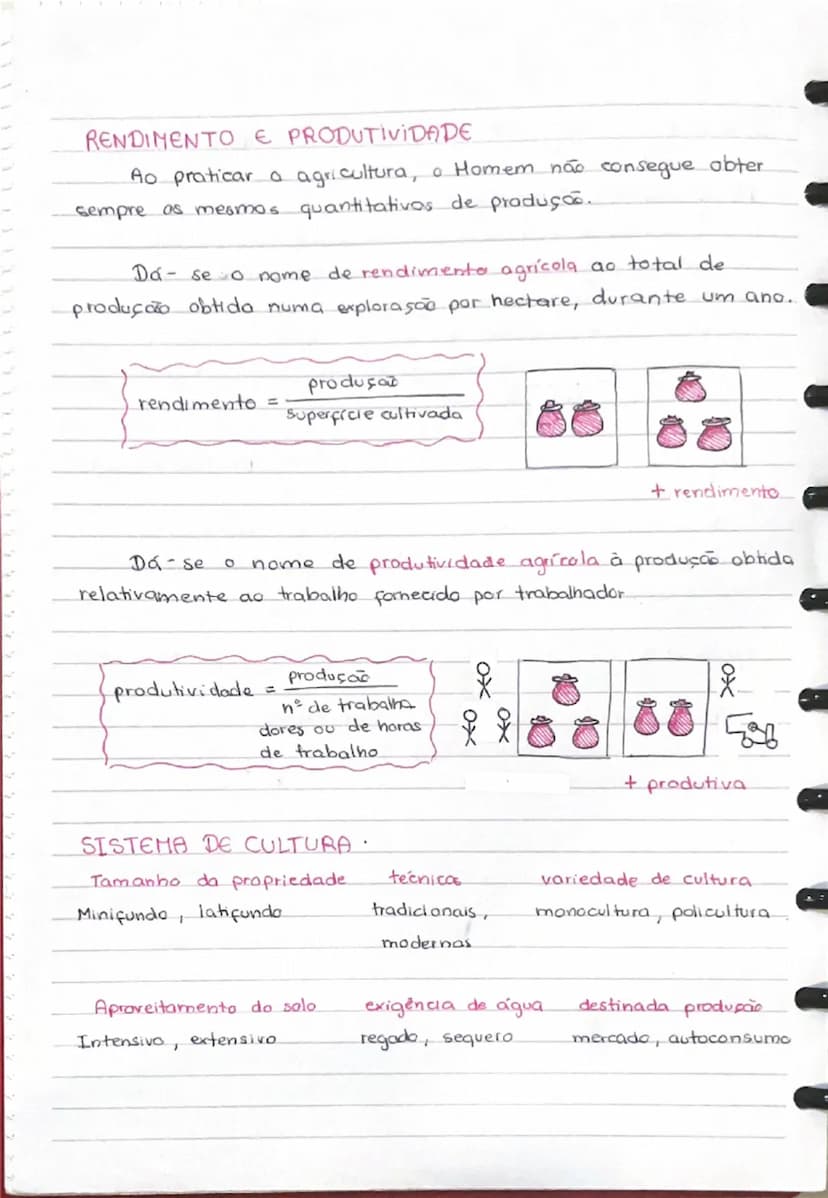 RENDIMENTO E PRODUTIVIDADE
Ao praticar a agricultura, o Homem não consegue obter
sempre os mesmos quantitativos de produção.
Dá-se o nome de rendimento agrícola ao total de
produção obtida numa exploração por hectare, durante um ano.
rendimento = produção
superfície cultivada
+ rendimento
Dá-se o nome de produtividade agrícola à produção obtida
relativamente ao trabalho fornecido por trabalhador
produtividade = produção
nº de trabalha
dores ou de horas
de trabalho
+ produtiva
SISTEMA DE CULTURA.
Tamanho da propriedade técnicas variedade de cultura
Minifundo, latifundo tradicionais, monocultura, policultura
modernas
Aproveitamento do solo exigência de água destinada produção
Intensivo, extensivo regado, sequero mercado, autoconsumo